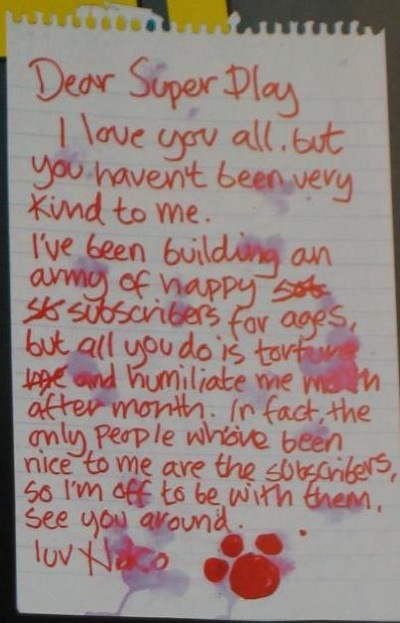 Dear Super Play
I love you all. but
you haven't been very
kind to me.
I've been building an
army of happy
subscribers for ages,
but all you do is torture
me and humiliate me month
after month. In fact, the
only people who've been
nice to me are the subscribers,
so I'm off to be with them.
see you around.
luv Neko